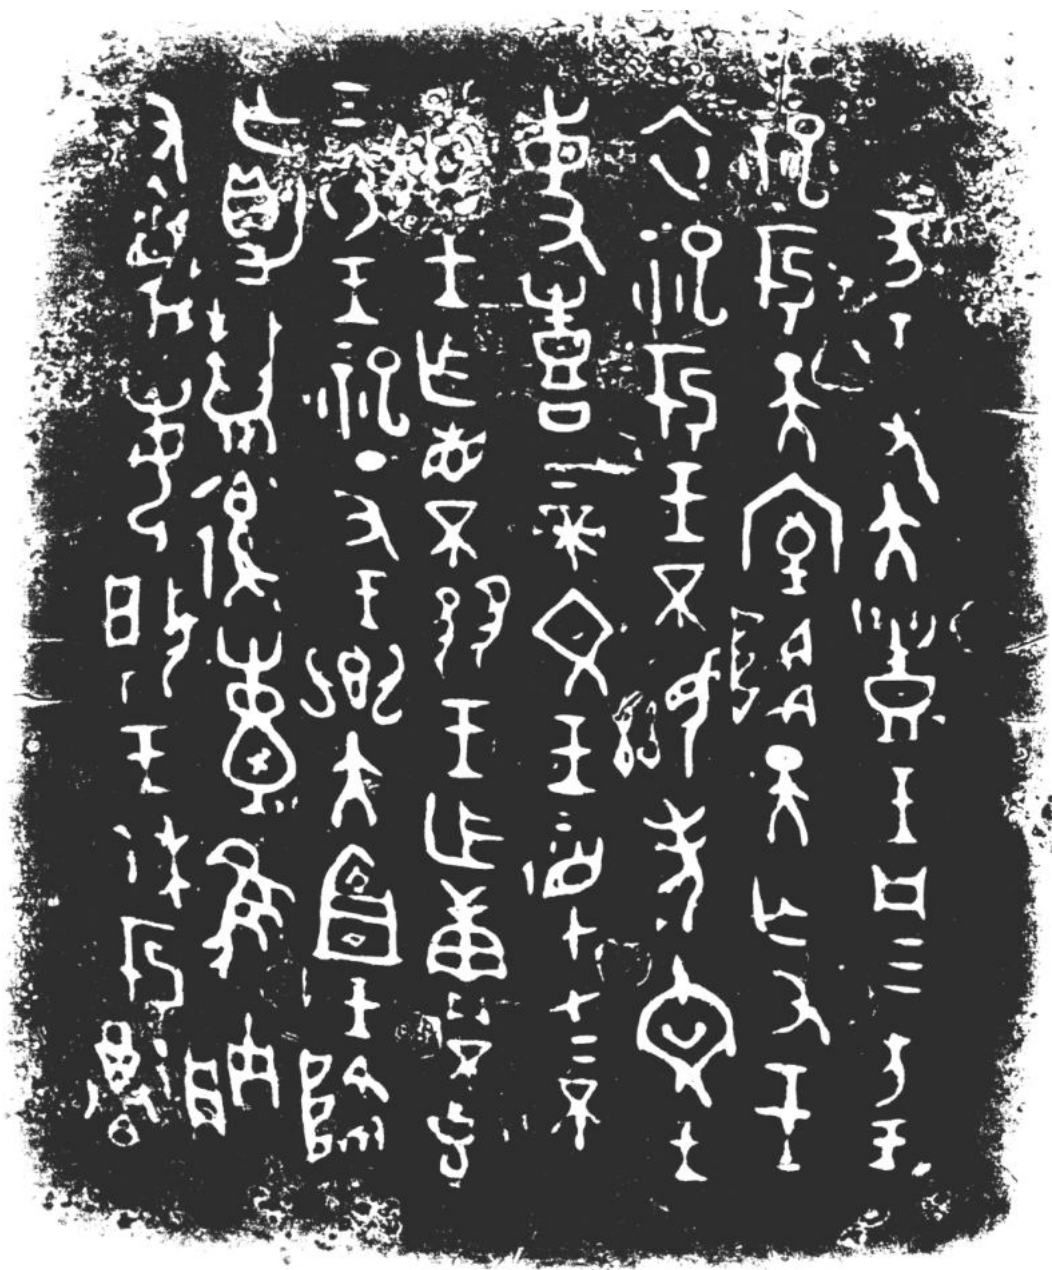 乙亥王又大豊王凡三方王
祀于天室降天亡又王
衣祀于王不顯考文王
事喜上帝文王監才上不
顯王乍眚不王乍庚不克
三衣王祀丁丑王鄉大宜王降
亡爵隹朕
又每揚王休于